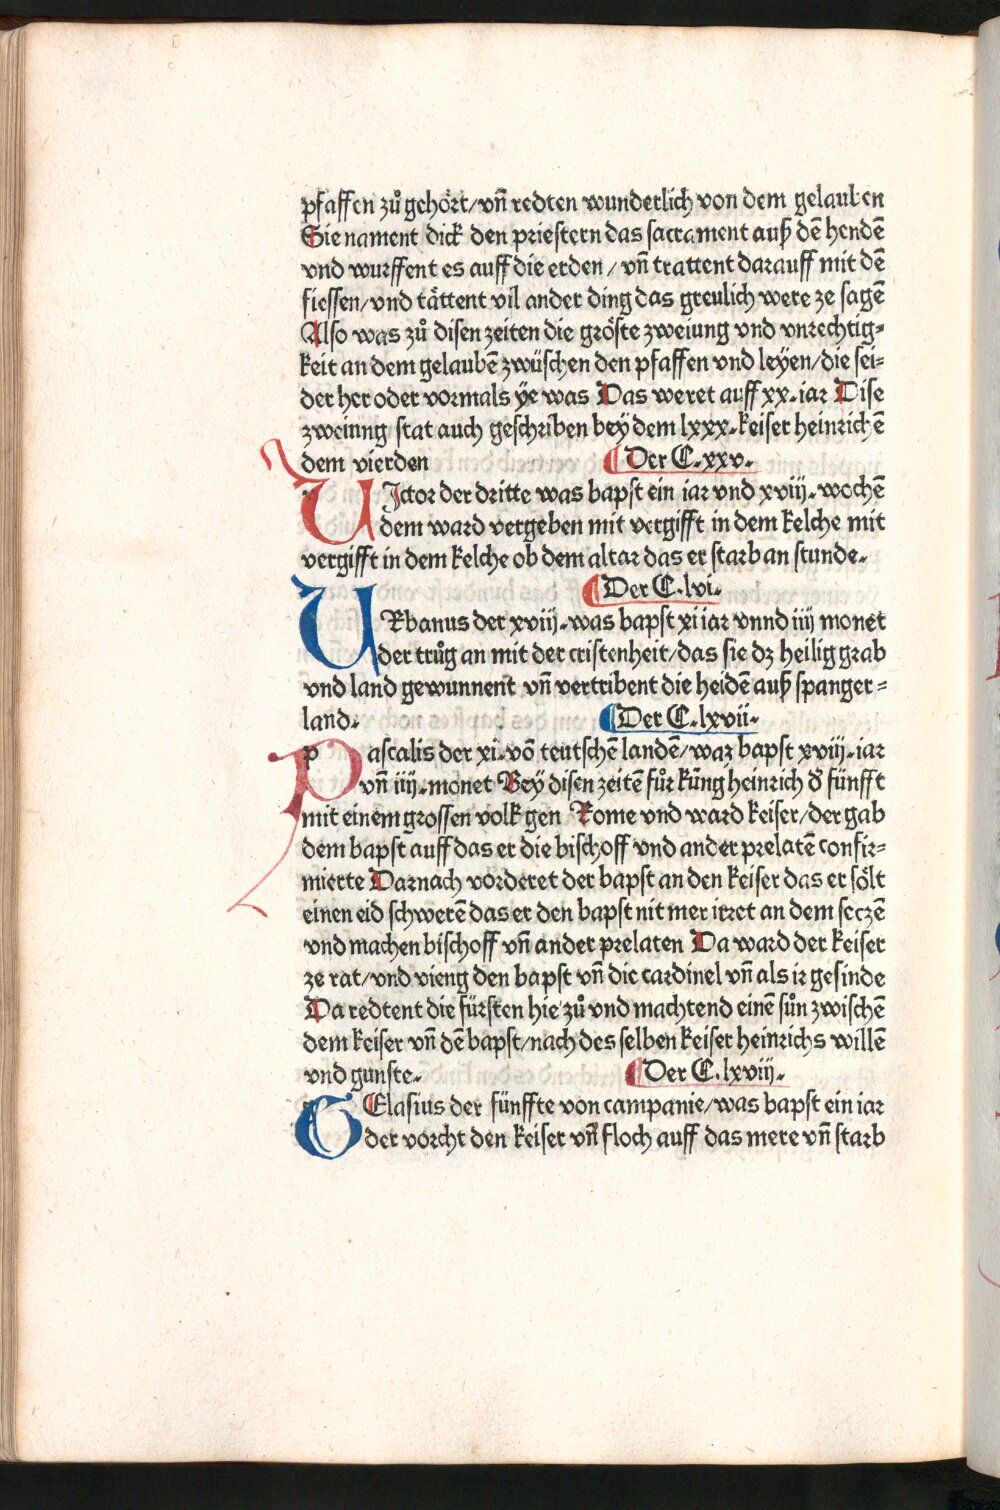 pfaffen zů gehört/vñ redten wunderlich von dem gelauben
Sie nament dick den priestern das sacrament auß dē hendē
vnd wurffent es auff die erden/ vñ trattent darauff mit dē
fiessen/vnd tättent vil ander ding das greulich were ze sagē
Also was zů disen zeiten die gröste zweiung vnd vnrechtig⸗
keit an dem gelaubē zwüschen den pfaffen vnd leyen/die sei⸗
der her oder vormals ye was Das weret auff xx.iar Dise
zweinng stat auch geschriben bey dem lxxx.keiser heinrichē
dem vierden Der C.xxv.
VJctor der dritte was bapst ein iar vnd xviij.wochē
dem ward vergeben mit vergifft in dem kelche mit
vergifft in dem kelche ob dem altar das er starb an stunde.
Der C.lvi.
URbanus der xviij.was bapst xi iar vnnd iiij monet
der trůg an mit der cristenheit/das sie dz heilig grab
vnd land gewunnent vñ vertribent die heidē auß spanger⸗
land. Der C.lxvii.
Pascalis der xi.vō teutschē landē/waz bapst xviij.iar
vñ iiij.monet Bey disen zeitē fůr küng heinrich d̕ fünfft
mit einem grossen volk gen Rome vnd ward keiser/der gab
dem bapst auff das er die bischoff vnd ander prelatē confir⸗
mierte Darnach vorderet der bapst an den keiser das er sölt
einen eid schwerē das er den bapst nit mer irret an dem seczē
vnd machen bischoff vñ ander prelaten Da ward der keiser
ze rat/vnd vieng den bapst vñ die cardinel vñ als ir gesinde
Da redtent die fürsten hie zů vnd machtend einē sůn zwischē
dem keiser vñ dē bapst/nach des selben keiser heinrichs willē
vnd gunste. Der C.lxviij.
GElasius der fünffte von campanie/was bapst ein iar
der vorcht den keiser vñ floch auff das mere vñ starb